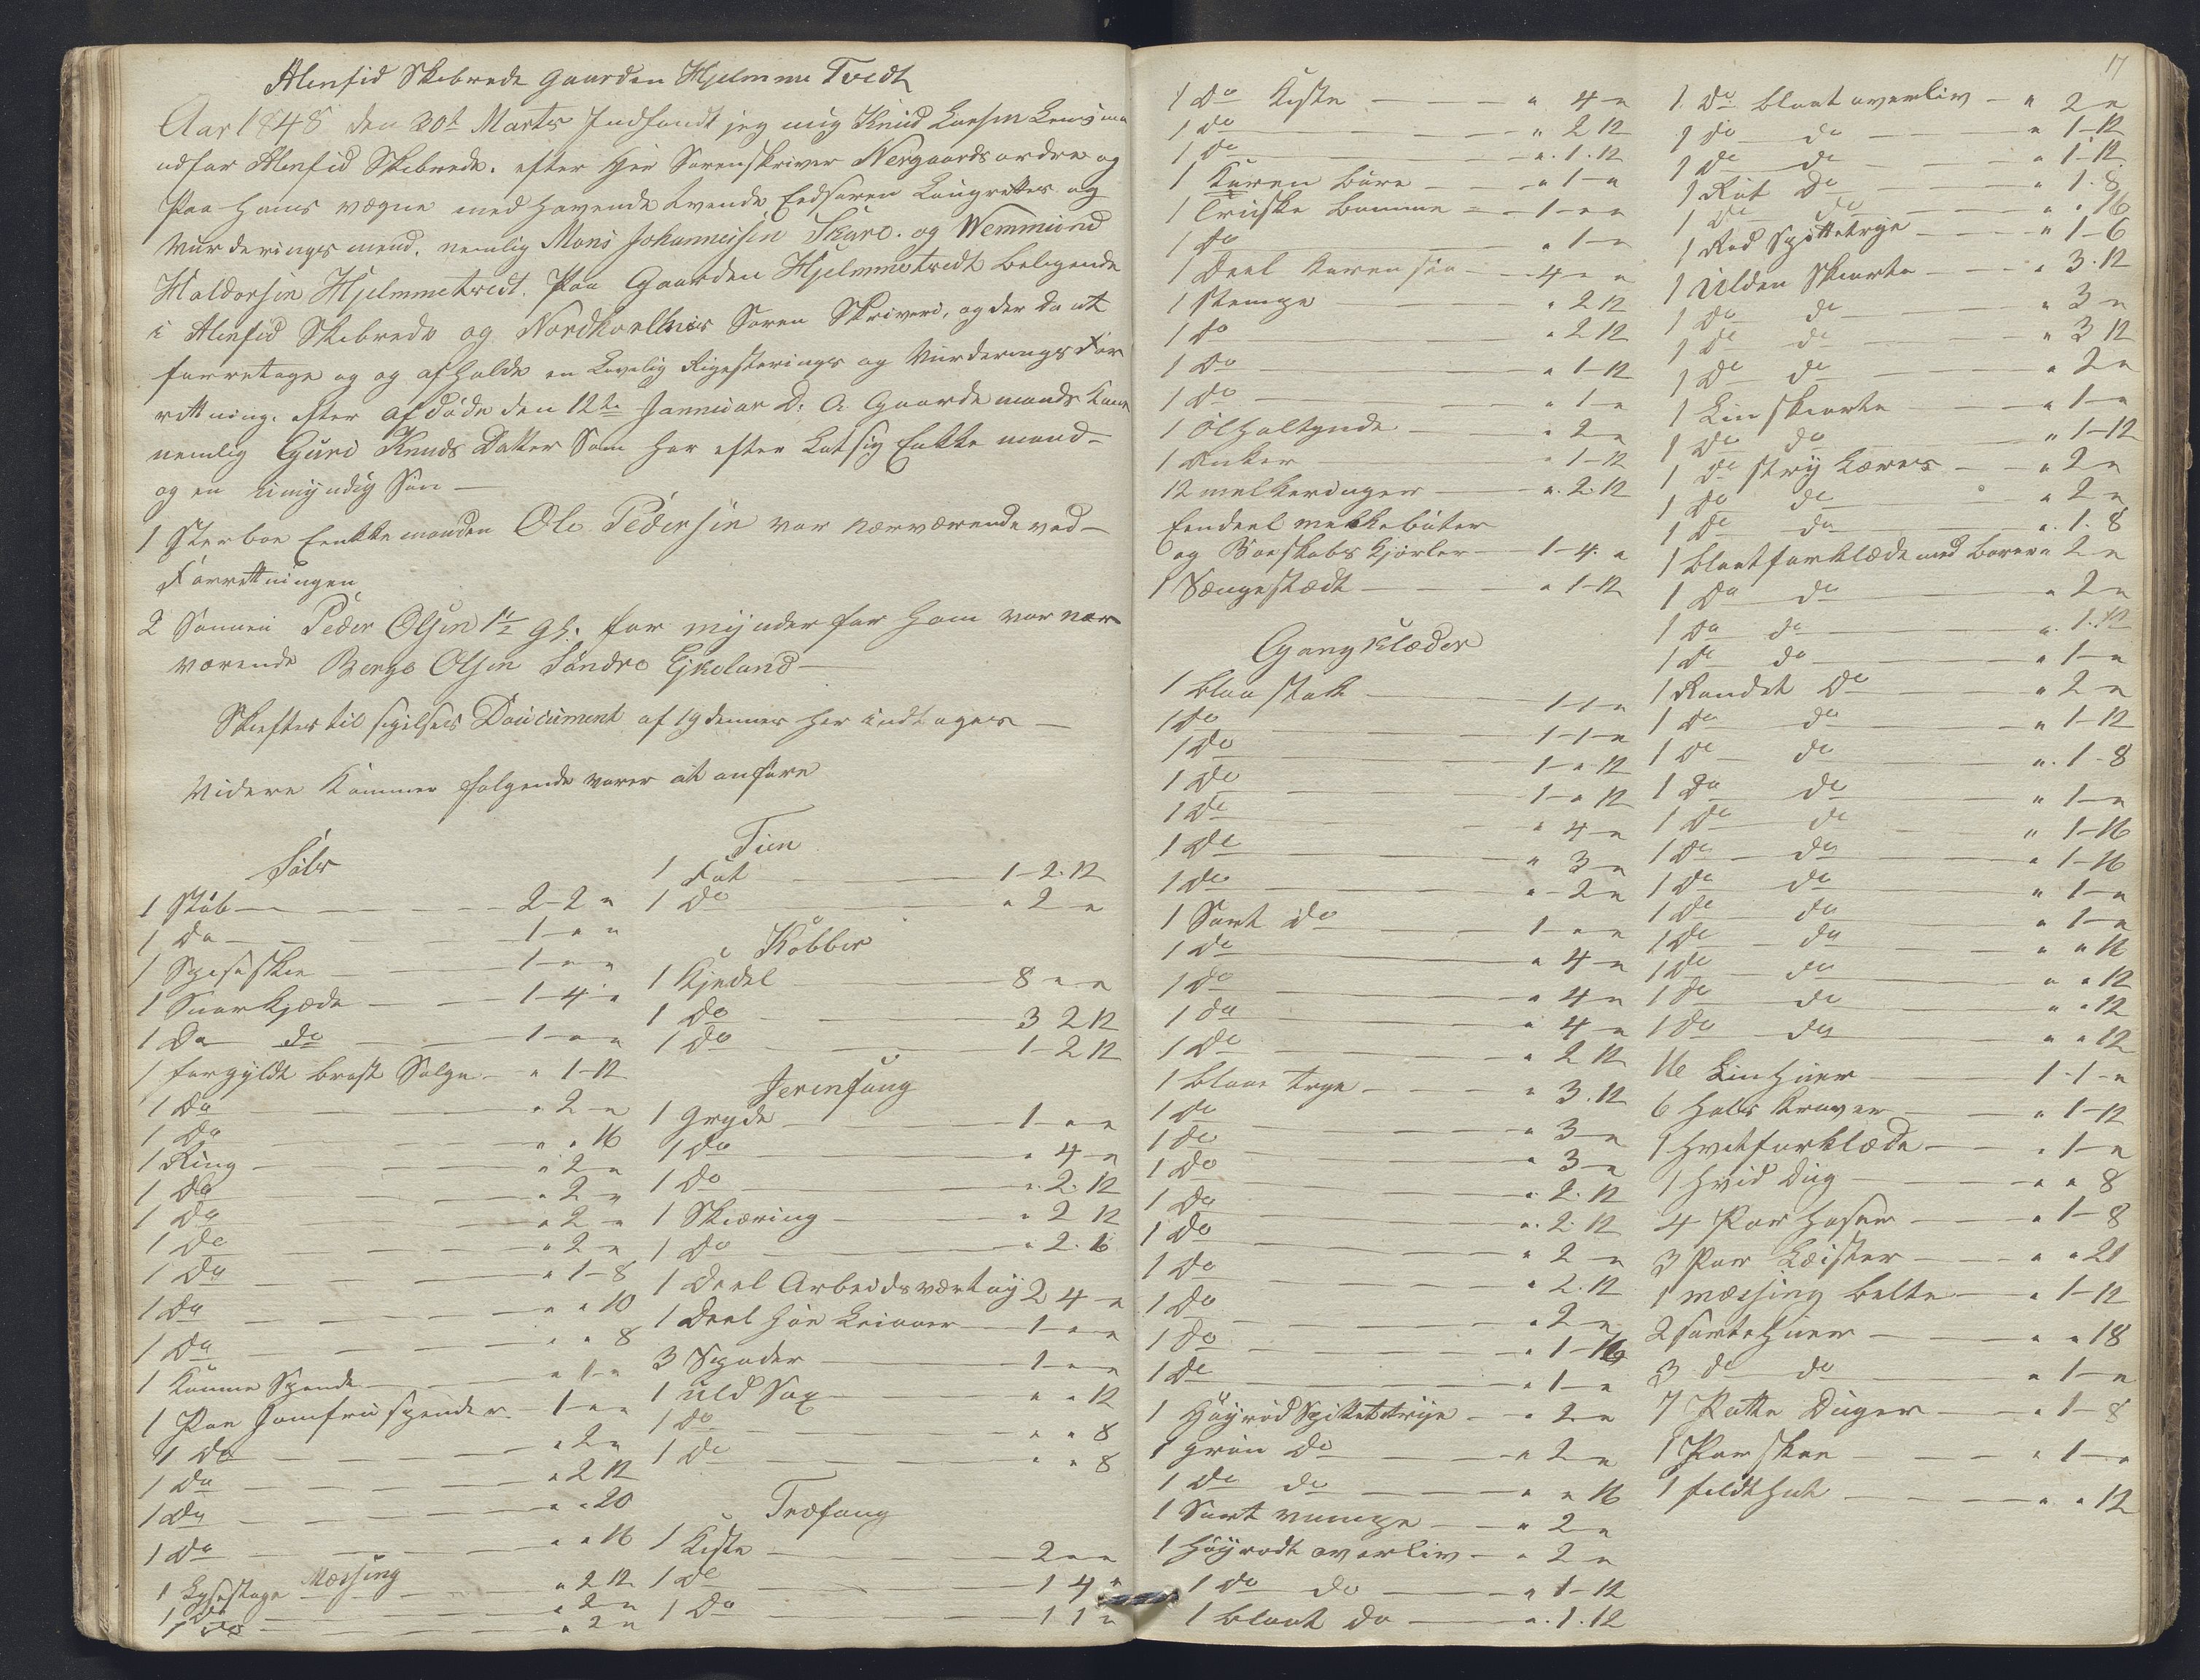 Alenfid Skibrede Gaarden Hjelmme Tvedt
Aar 1848 den 30t Marts Indfandt jeg mig Knud Larsen Lensma
udfor Alenfid Skibrede. efter Her Sorenskriver Nergaards ordre og
Paa Hans vægne med Havende tvende Eedsoren Laugrettes og
Vurderingsmend. nemlig Mons Johannesen Skare. og Wemmund
Haldorsen Hjelmmetvedt. Paa Gaarden Hjelmmetvedt beligende
i Alenfid Skibrede og Nordhorllens Soren Skriveri, og der Da at
forretage og og afholde en Lovelig Rigesterings og Vurderings For
rettning. efter afdøde den 12te Januar D: A Gaardemands Kone
nemlig Guri Knuds Datter Som har efter Lat sig Enkke mand
og en umyndig Søn —
1 Sterboe Enkkemanden Ole Pedersen var nærværende ved
Forrettningen
2 Sønnen Peder Olsen 1½ g. formynder for ham var nær
værende Berge Olsen Søndre Ejkeland
Skiftes til sigelses Doucument af 19 dennes her indtages —
Videre Kommer følgende varer at anføre
Sølv
1 Støb — 2-2 "
1 Do — 1 - " "
1 Spiseskee — 1 - " "
1 Snorkjæde — 1-4 "
1 Do do — 1 - " "
1 forgyldt brost Solge — " 1-12
1 Do — " 2 "
1 Do — " " 16
1 Ring — " 2 "
1 Do — " 2 "
1 Do — " 2 "
1 Do — " 2 "
1 Do — " 1-8
1 Do — " " 10
1 Do — " " 8
1 Kaame Spende — " 1 "
1 Par Jomfru spender — 1 - " "
1 Do — " 2 "
1 Do — " 2 12
1 Do — " " 20
1 Do — " " 16
Messing
1 Lysestage — " 2 12
1 Do — " 2 "
1 Do — " 2 "
Tien
1 Fat — 1-2-12
1 Do — " 2 "
Kobber
1 Kjedel — 8 " "
1 Do — 3 2 12
1 Do — 1-2 12
Jerenfang
1 Gryde — 1 " "
1 Do — " 4 "
1 Do — " 2. 12
1 Skiæring — " 2 12
1 Do — " 2. 16
1 Deel Arbeidsværtøy 2 4 "
1 Deel Høe Leiaaer — 1 " "
3 Spader — 1 " "
1 uld Sax — " " 12
1 Do — " " 8
1 Do — " " 8
Træfang
1 Kiste — 2 " "
1 Do — 1 4 "
1 Do — 1 1 "
17
1 Do Kiste — " 4 "
1 Do — " 2 12
1 Do — " 1. 12
1 Karen Bure — " 1 "
1 Trieske Bomme — 1 " "
1 Do — " 1 "
1 Deel Karen sie — 4 " "
1 Stempe — " 2 12
1 Do — " 2 12
1 Do — " 1-12
1 Do — " 1 "
1 Ølhaltynde — " 2 "
1 Anker — " 1-12
12 melkeringer — " 2. 12
Eendeel melkebøter
og Boeskabs Kjørler — 1-4 "
1 Sængestædt — " 1-12
Gangklæder
1 blaa stak — 1-1 "
1 Do — 1-1 "
1 Do — 1 " 12
1 Do — 1 " 12
1 Do — " 4 "
1 Do — " 3 "
1 Do — " 2 "
1 Sort do — 1 " "
1 Do — " 4 "
1 Do — " 4 "
1 Do — " 4 "
1 Do — " 2 12
1 blaae trye — " 3. 12
1 Do — " 3 "
1 Do — " 3 "
1 Do — " 2. 12
1 Do — " 2. 12
1 Do — " 2 "
1 Do — " 2. 12
1 Do — " 2 "
1 Do — " 1-16
1 Do — " 1 "
1 Høyrød Spittetrye — " 2 "
1 grøn Do — " 2 "
1 Do do — " " 16
1 Sort vampe — " 2 "
1 Høyrødt overliv — " 2 "
1 Do do — " 1-12
1 blaat do — " 1. 12
1 Do blaat overliv — " 2 "
1 Do do — " 1-12
1 Do do — " 1-12
1 Rut Do — " 1. 8
1 Do do — " " 16
1 Rød Spittetrye — " 1-6
1 Ulden Skiorte — " 3. 12
1 Do do — " 3 "
1 Do do — " 3 12
1 Do do — " 2 "
1 Lin skiorte — " 1 "
1 Do do — " 1-12
1 Do stry Lærres — " 2 "
1 Do do — " 2 "
1 Do do — " 1. 8
1 blaatforklæde med borer " 2 "
1 Do do — " 2 "
1 Do do — " 1. 12
1 Do do — " 1 "
1 Randet Do — " 2 "
1 Do do — " 1-12
1 Do do — " 1-8
1 Do do — " 1 "
1 Do do — " 1-16
1 Do do — " 1-16
1 Do do — " 1 "
1 Do do — " 1 "
1 Do do — " " 16
1 Do do — " " 12
1 Do do — " " 12
1 Do do — " " 12
16 Linhuer — 1-1 "
6 Hals Kraver — " 1-12
1 Hvitforklæde — " 1 "
1 Hvid Dug — " " 8
4 Par Hoser — " 1-8
3 Par Leister — " " 21
1 messing belte — " 1-12
2 sorte Huer — " " 18
3 do do — " 1 "
7 Kotte Duger — " 1-8
1 Par skoe — " 1 "
1 fildt Hat — " " 12